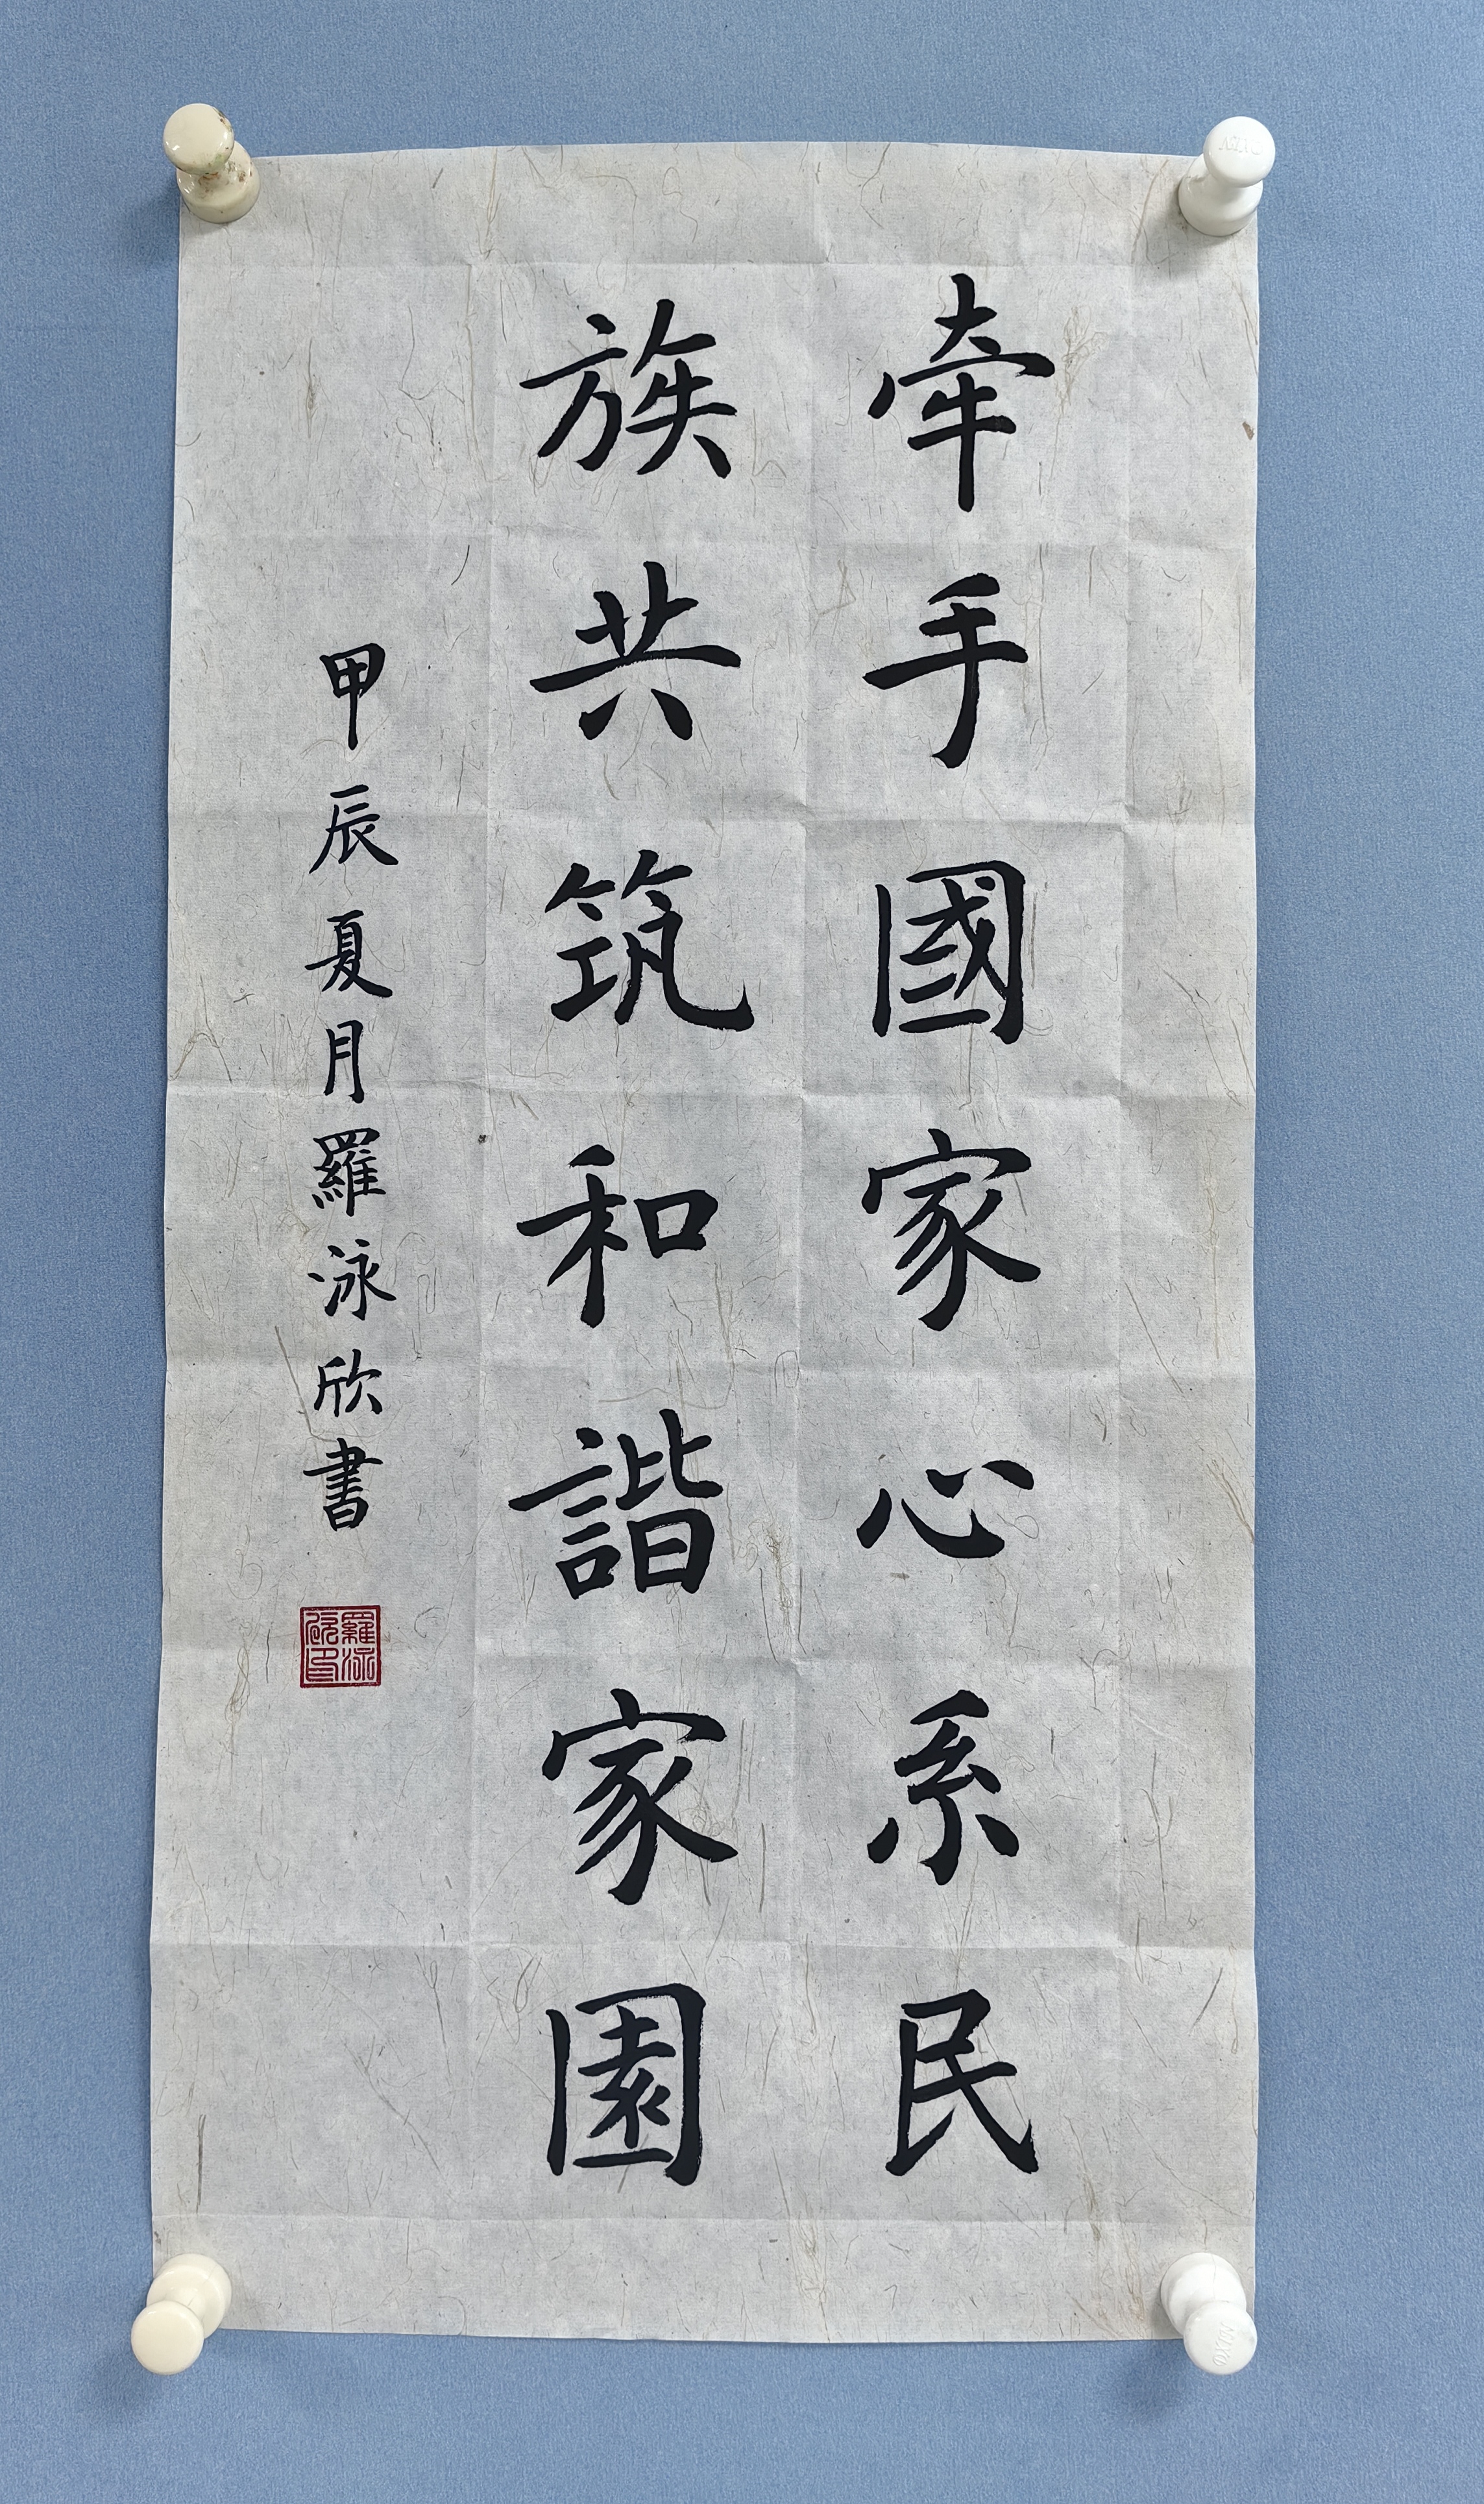 牵手國家心系民
族共筑和諧家園
甲辰夏月羅泳欣書
羅泳欣印